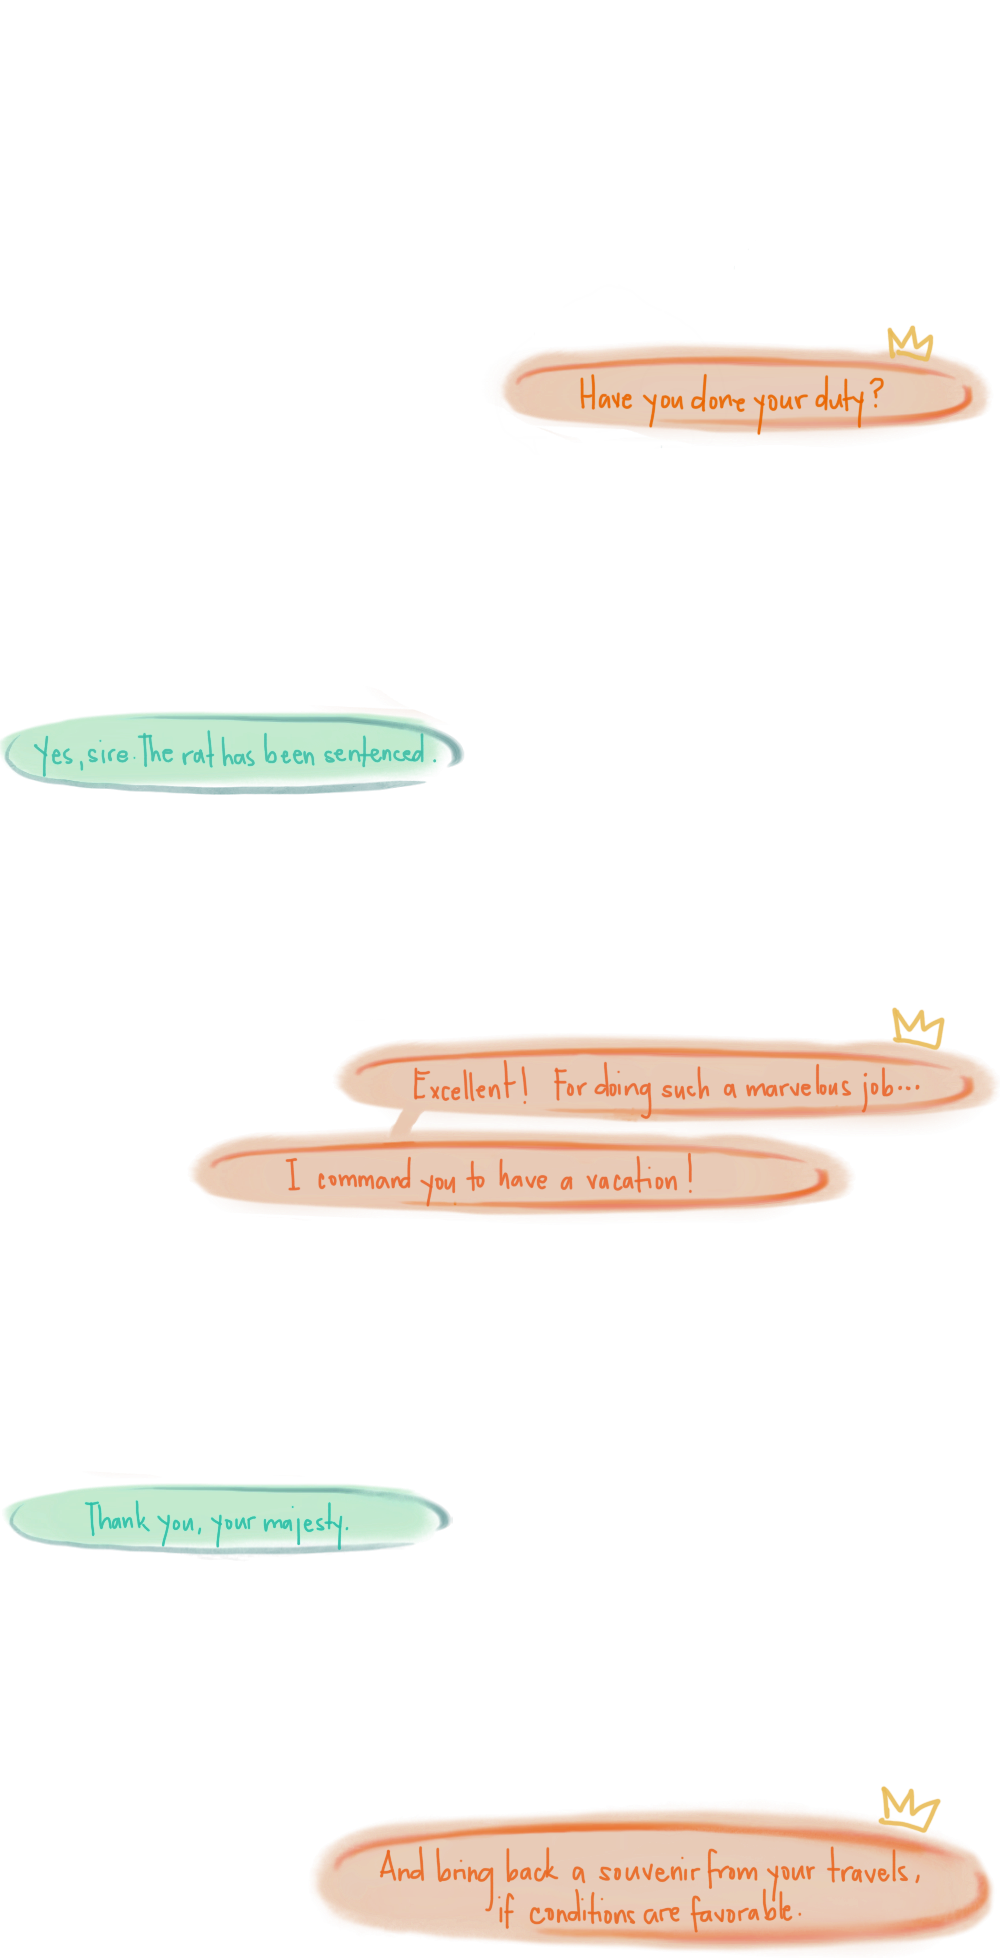 Have you done your duty?
Yes, sire. The rat has been sentenced.
Excellent! For doing such a marvelous job...
I command you to have a vacation!
Thank you, your majesty.
And bring back a souvenir from your travels,
if conditions are favorable.